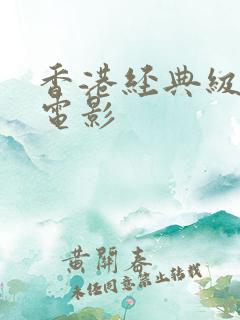 香港経典級
電影
黄開春
未经同意禁止转载